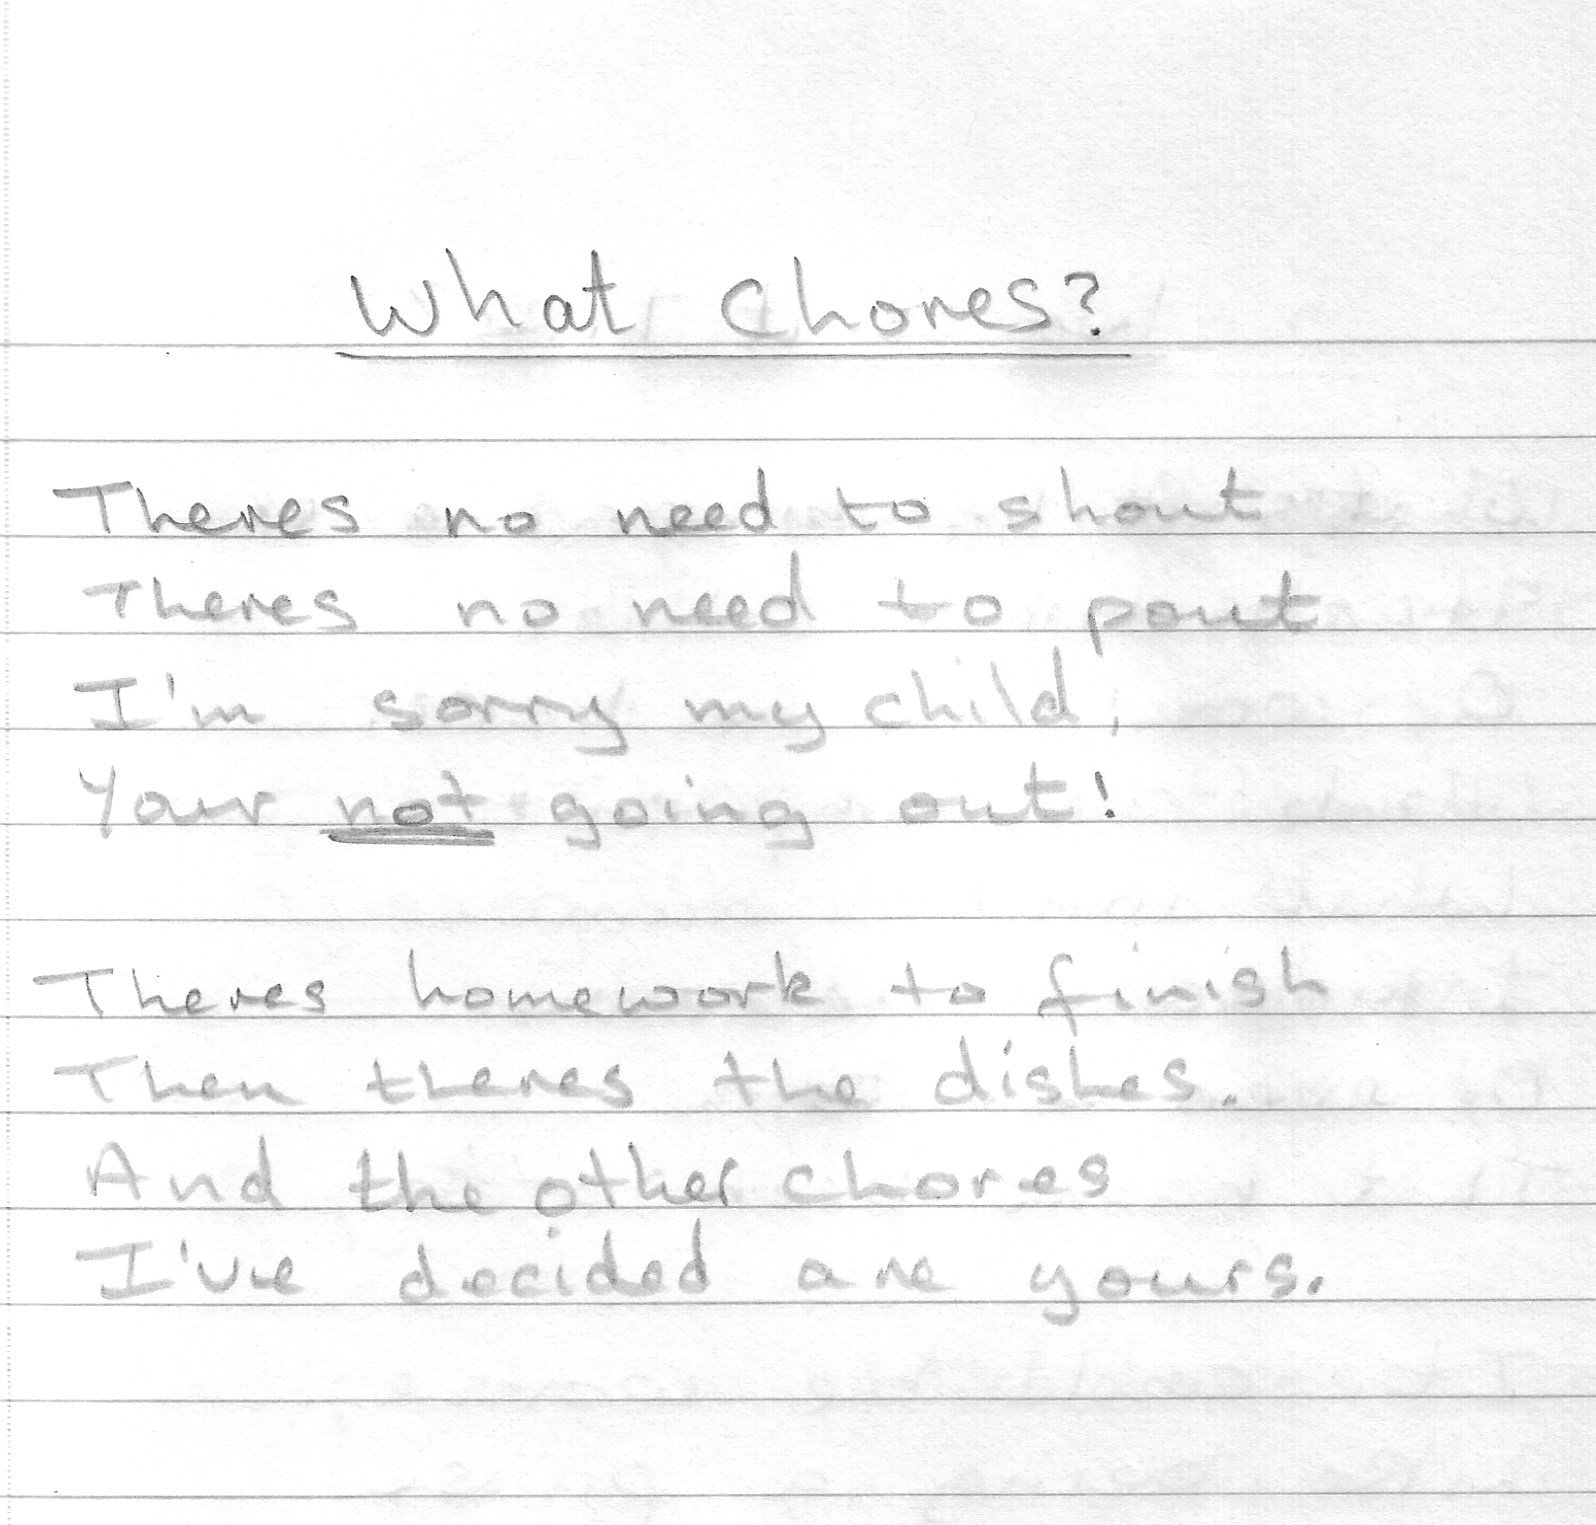 What Chores?
Theres no need to shout
Theres no need to pout
I'm sorry my child,
Your not going out!
Theres homework to finish
Then theres the dishes.
And the other chores
I've decided are yours.